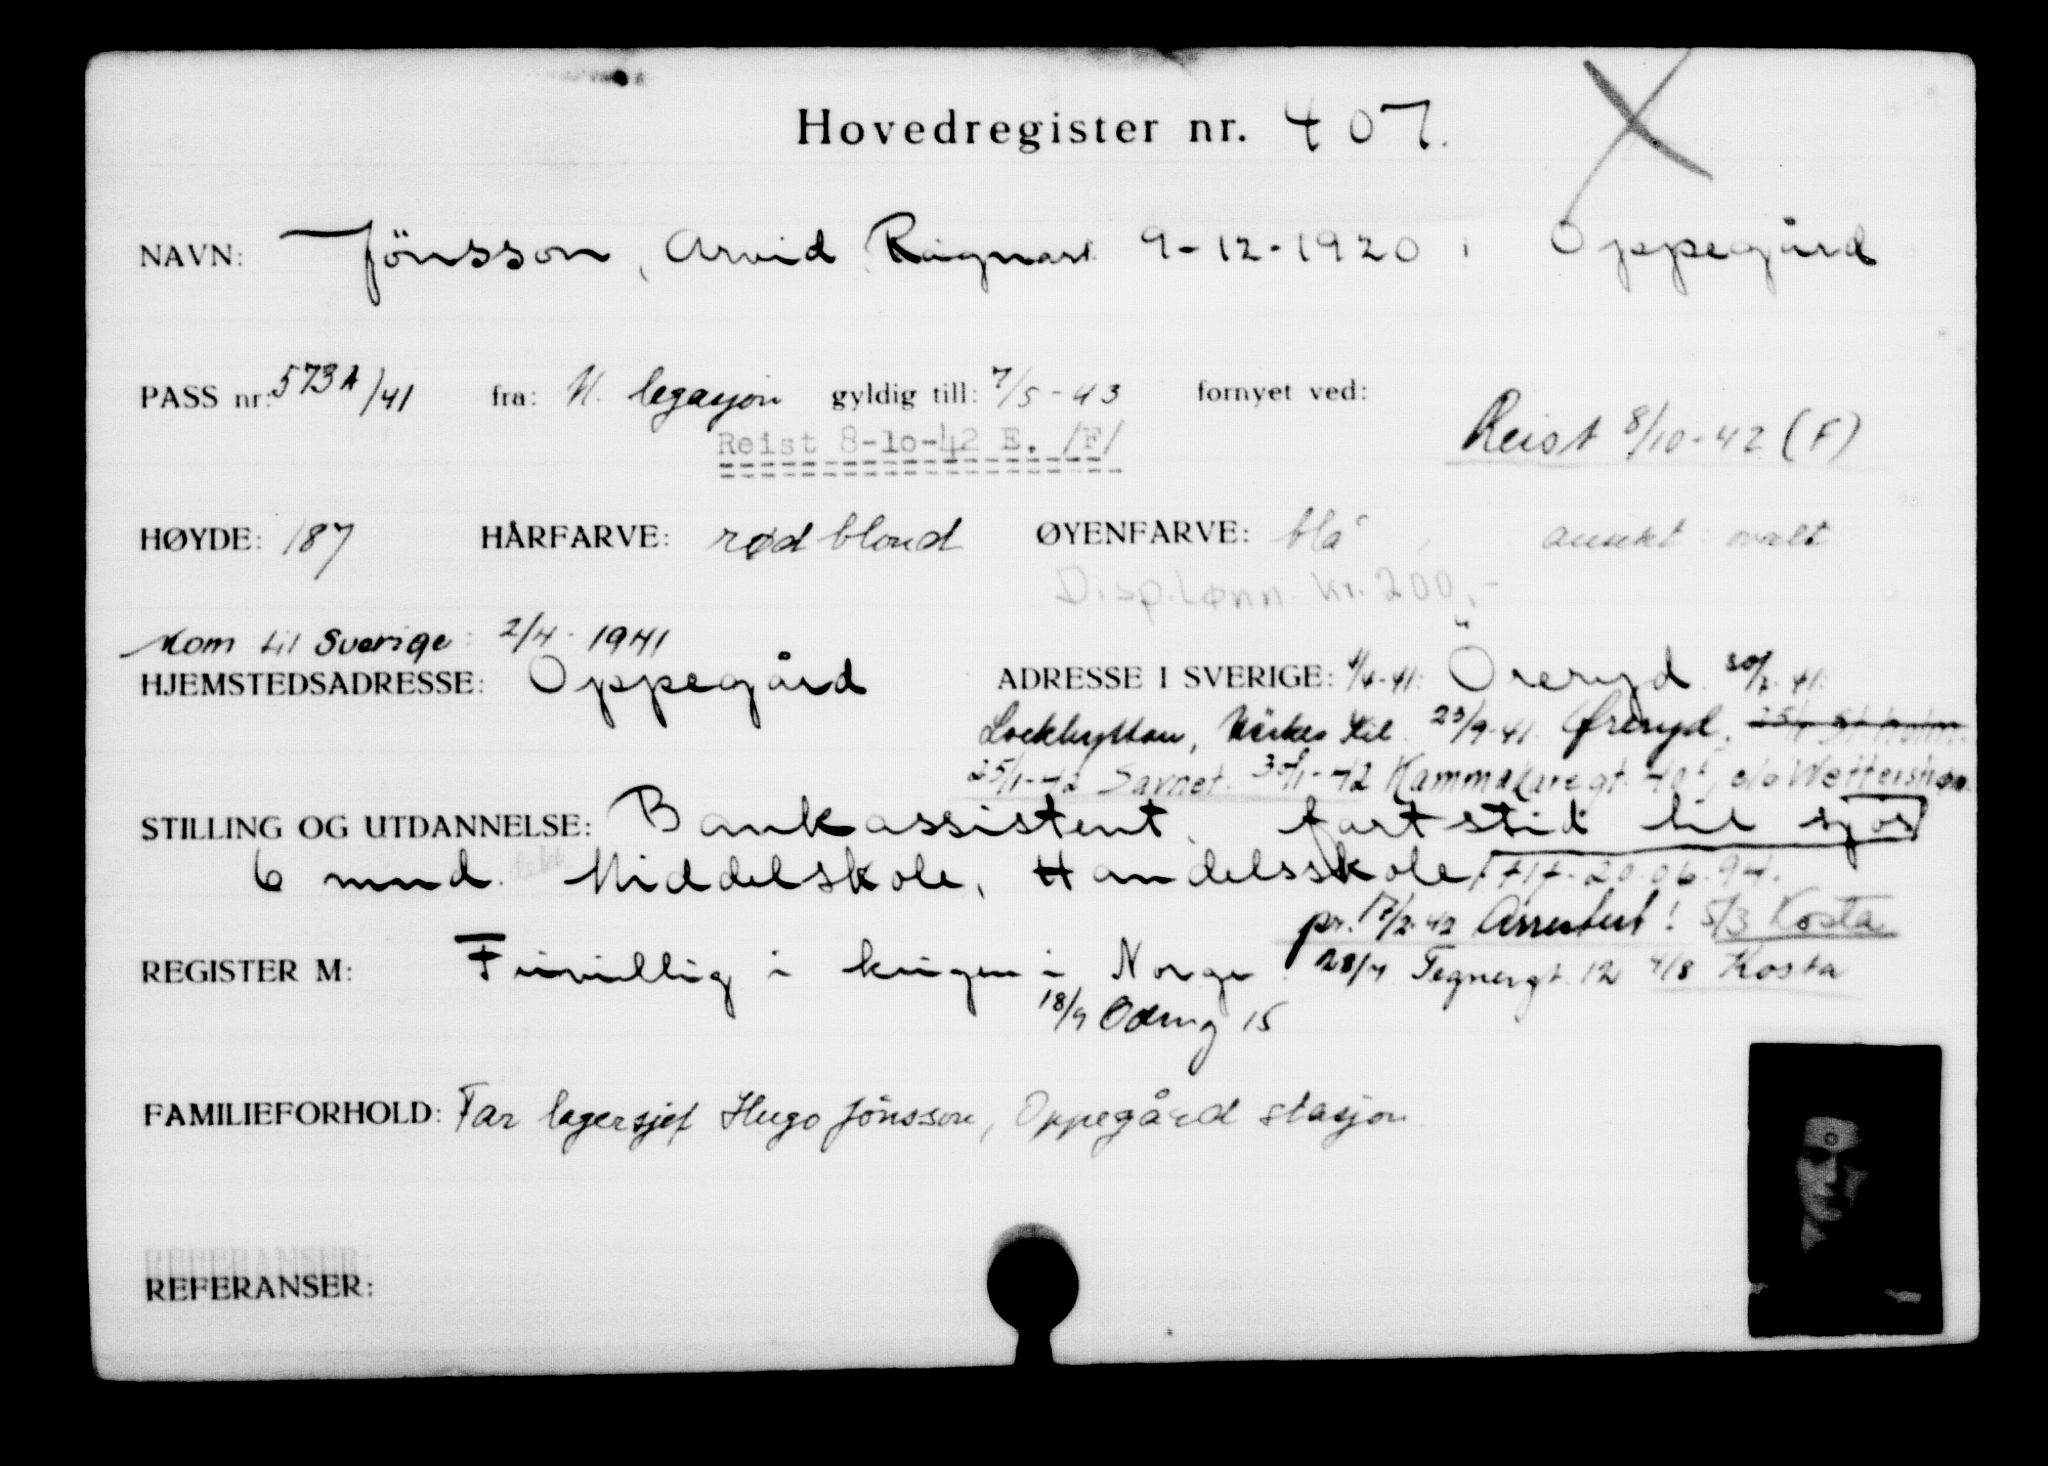 Hovedregister nr. 407.
NAVN: Jönsson, Arvid Ragnar 9-12-1920 i Oppegård
PASS nr: 573A/41 fra: N. legasjon gyldig till: 7/5-43 fornyet ved:
Reist 8-10-42 E. /F/
Reist 8/10-42 (F)
HØYDE: 187 HÅRFARVE: rødblond ØYENFARVE: blå ansikt: ovalt
Disp.lønn. kr. 200,-
Kom til Sverige: 2/4-1941
HJEMSTEDSADRESSE: Oppegård ADRESSE I SVERIGE: 4/4-41: Öreryd
Lockhyttan, 23/9-41 Øreryd,
25/1-42 Savnet. 30/1-42 Kammakaregt. c/o Wetterstrøm
STILLING OG UTDANNELSE: Bankassistent, fartstid til sjøs
6 mnd. Middelskole, Handelsskole, tlf. 20.06.94.
pr. 17/2-42 Arrestert! 5/3 Kosta
REGISTER M: Frivillig i krigen i Norge 28/4 Tegnergt. 12 4/8 Kosta
18/9 15
FAMILIEFORHOLD: Far lagersjef Hugo Jönsson, Oppegård stasjon
REFERANSER: